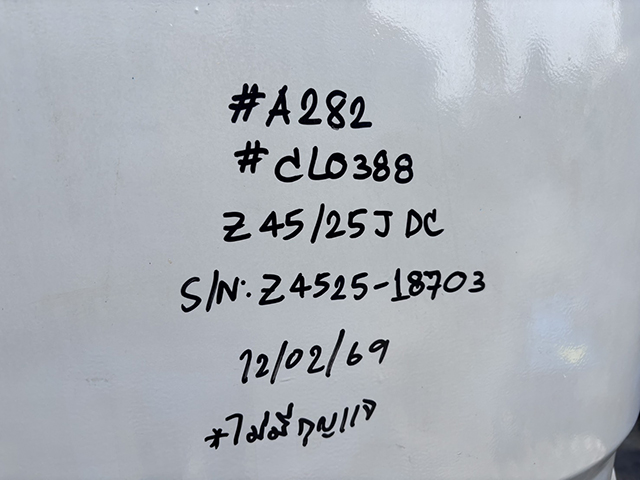 #A282
#CL0388
Z 45/25J DC
S/N: Z4525-18703
12/02/69
*ไม่มีกุญแจ